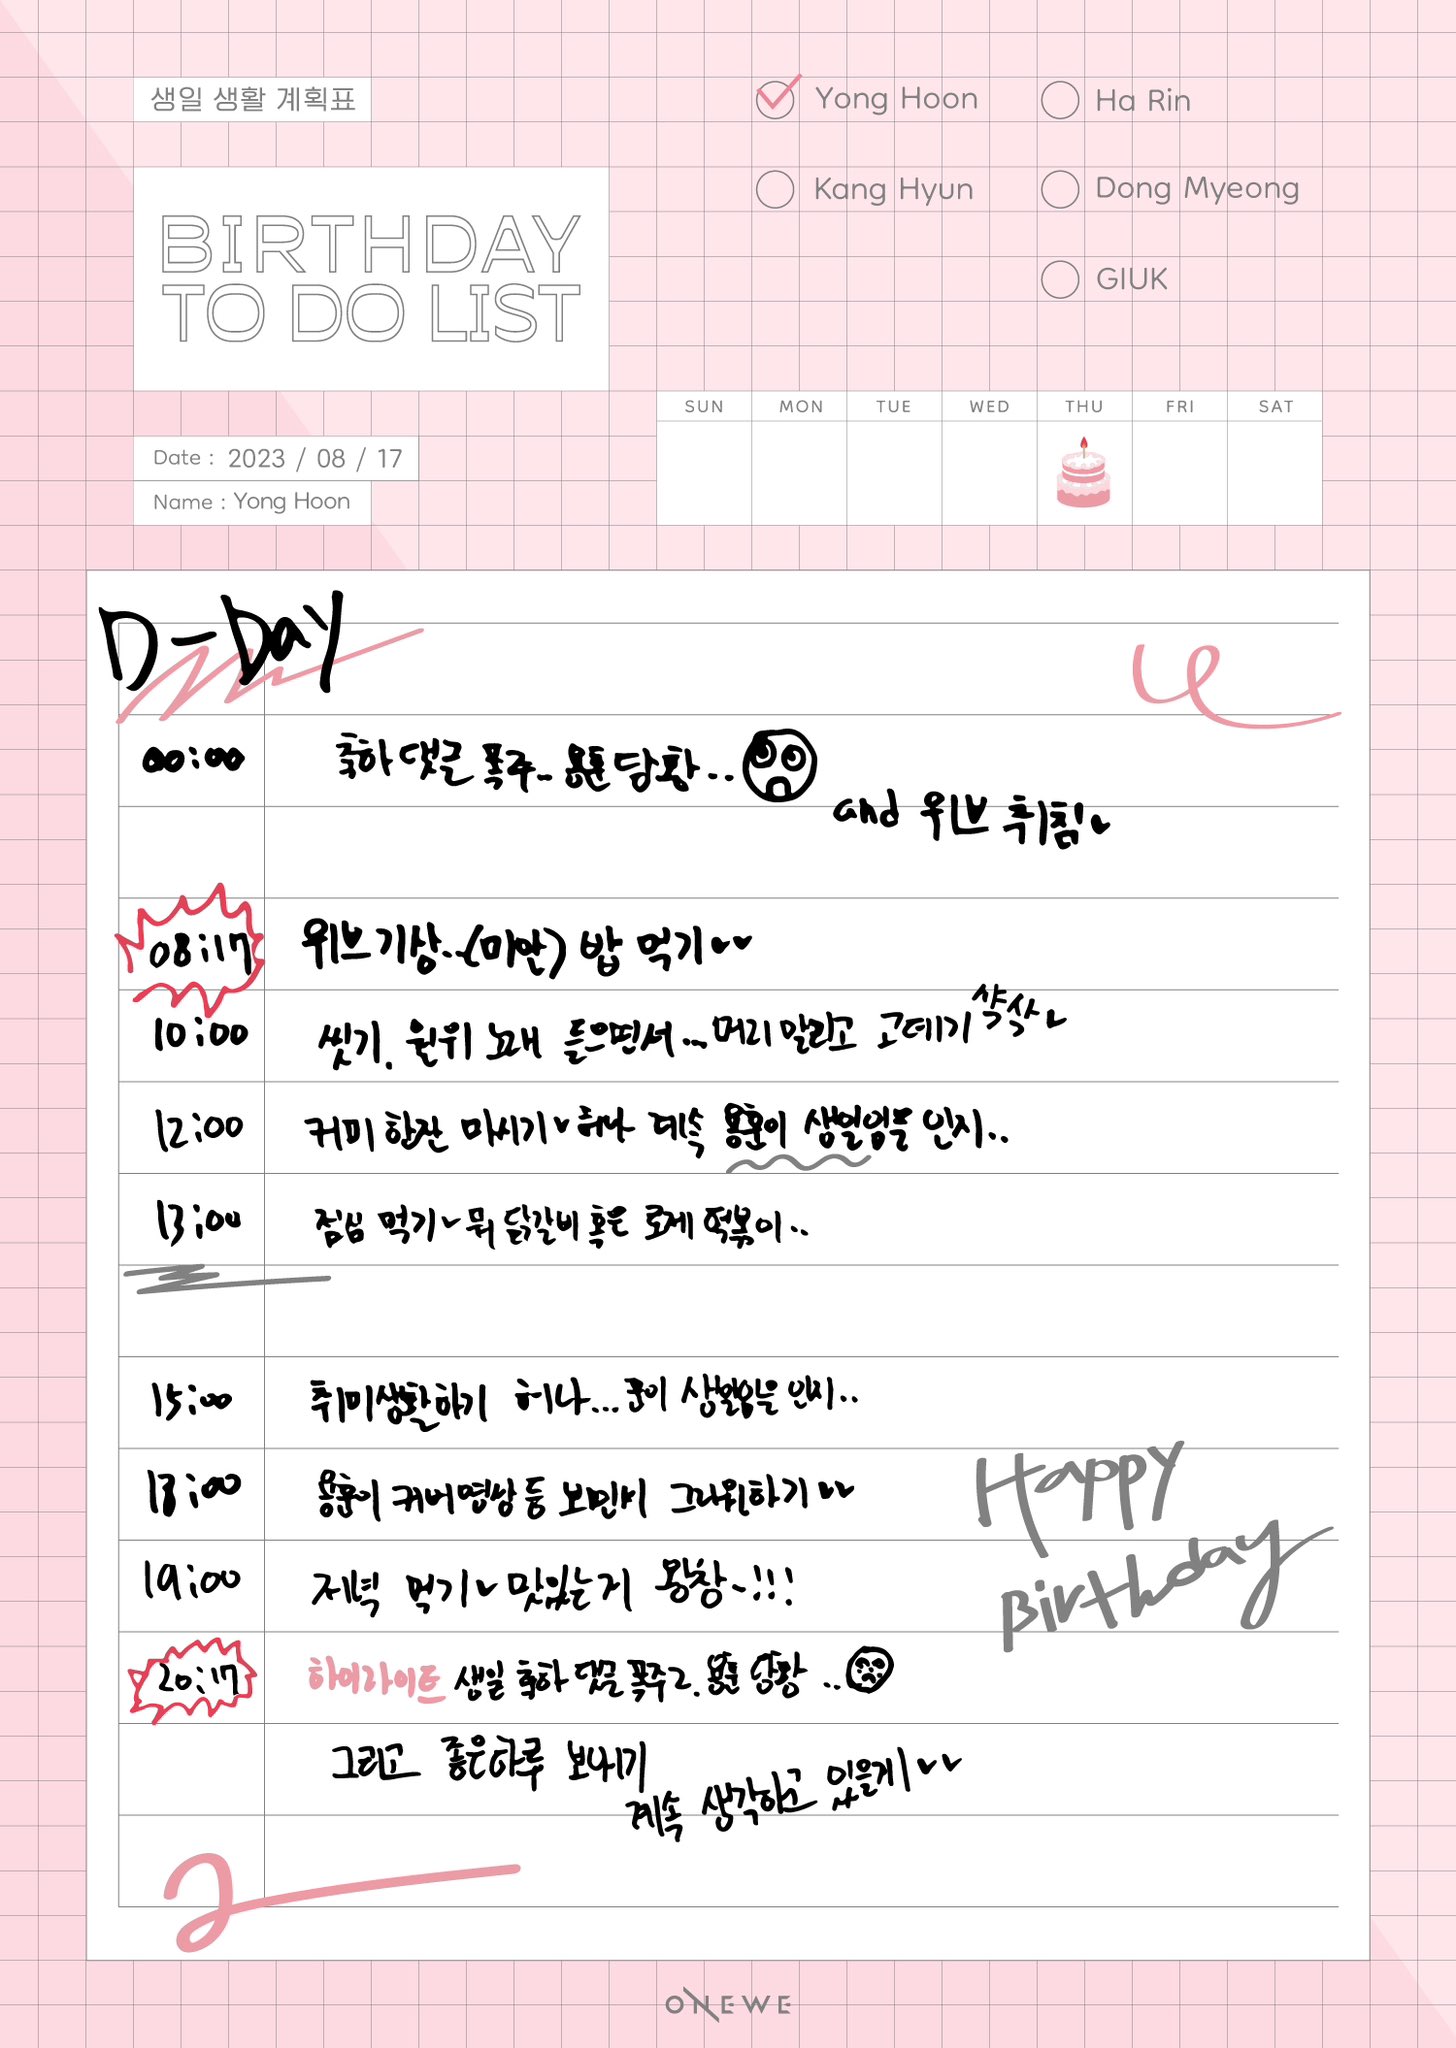 생일 생활 계획표
Yong Hoon
Ha Rin
Kang Hyun
Dong Myeong
GIUK
BIRTHDAY
TO DO LIST
SUN MON TUE WED THU FRI SAT
Date : 2023 / 08 / 17
Name : Yong Hoon
D-Day
00:00 축하 댓글 폭주.. 용훈 당황..
and 위브 취침
08:17 위브 기상..(미안) 밥 먹기
10:00 씻기. 원위 노래 들으면서... 머리 말리고 고데기 샥샥
12:00 커피 한잔 마시기 허나 계속 용훈이 생일임을 인지..
13:00 점심 먹기 뭐 닭갈비 혹은 로제 떡볶이..
15:00 취미생활하기 허나... 훈이 생일임을 인지..
18:00 용훈이 커버영상 등 보면서 그리워하기
Happy
Birthday
19:00 저녁 먹기 맛있는거 왕창~!!!
20:17 하이라이트 생일 축하 댓글 폭주2. 용훈 당황..
그리고 좋은하루 보내기
계속 생각하고 있을게
ONEWE